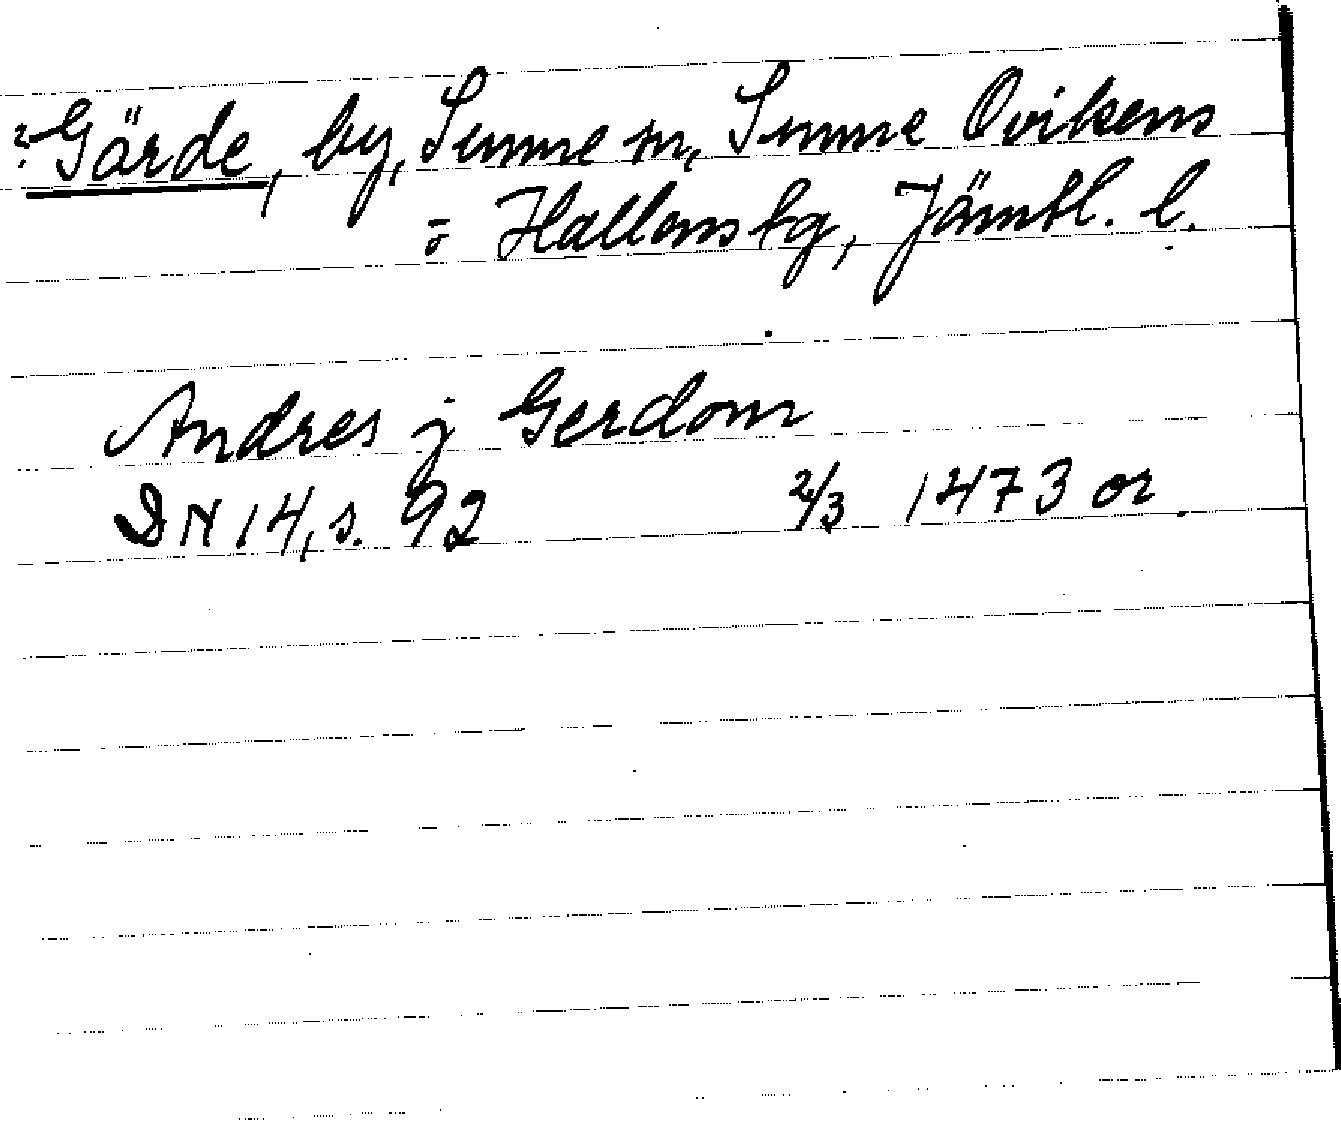 ? Gärde, by, Sunne sn, Sunne Ovikens
= Hallens tg, Jämtl. l.
Andres j Gerdom
DN 14, s. 92 2/3 1473 or.